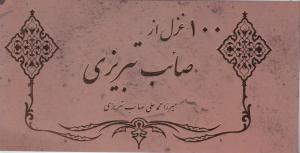 ۱۰۰ غزل از
صائب تبریزی
میرزا محمد علی صائب تبریزی